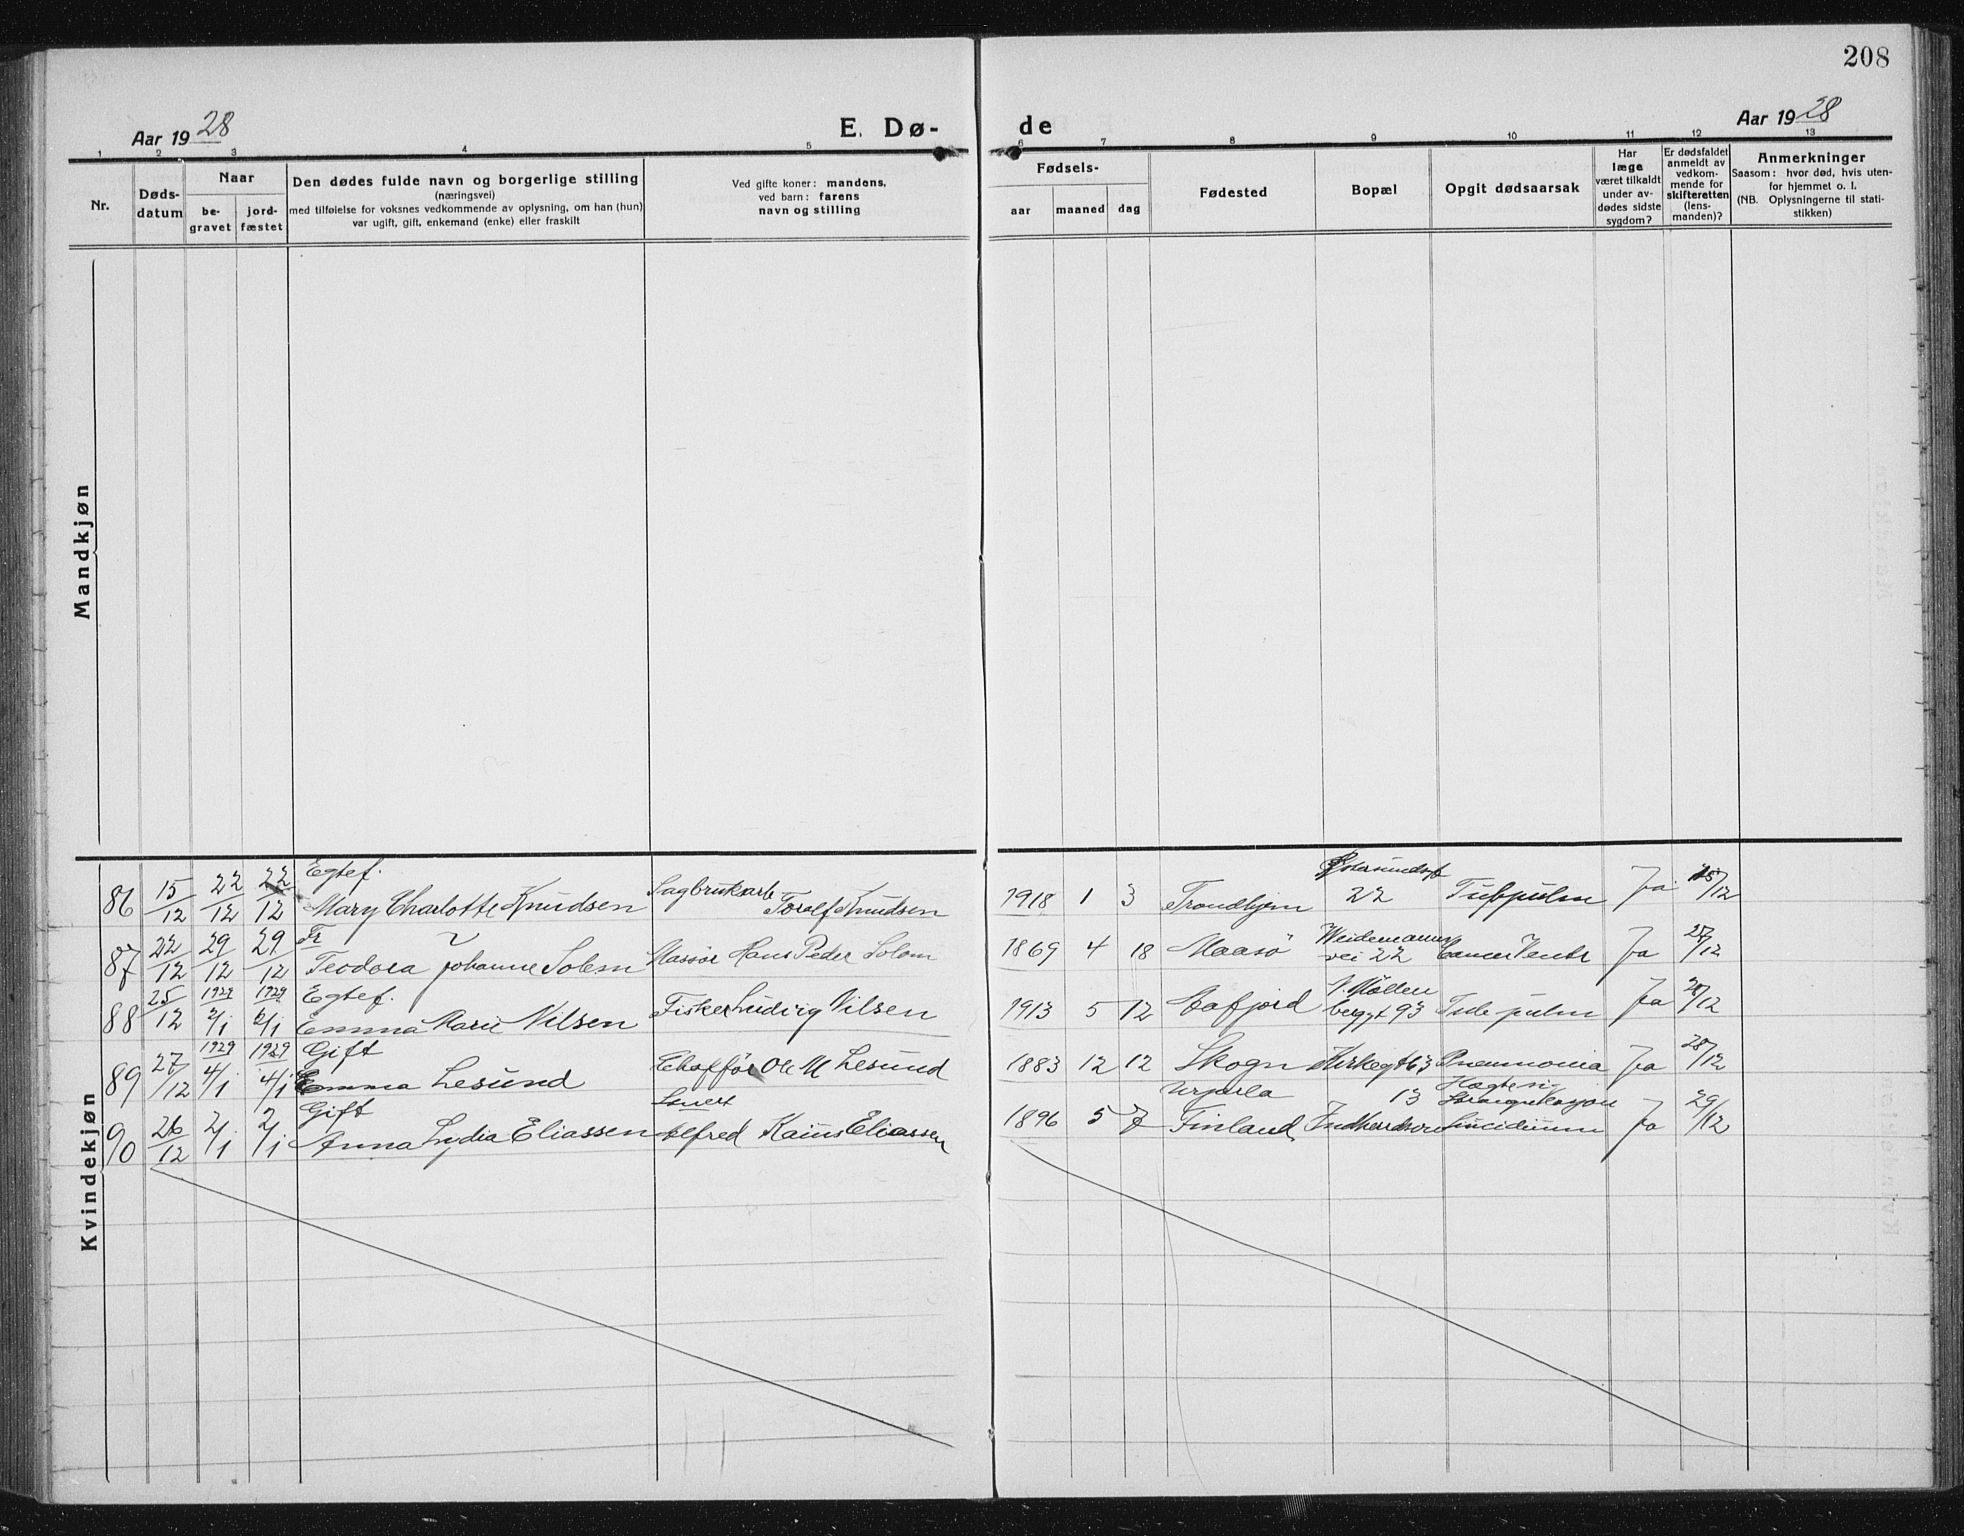 208
Aar 1928
E. Dø-
de
Aar 1928
1 2 3 4 5 6 7 8 9 10 11 12 13
Nr.
Døds-
datum
Naar
be-
gravet
jord-
fæstet
Den dødes fulde navn og borgerlige stilling
(næringsvei)
med tilføielse for voksnes vedkommende av oplysning, om han (hun)
var ugift, gift, enkemand (enke) eller fraskilt
Ved gifte koner: mandens,
ved barn: farens
navn og stilling
Fødsels-
aar maaned dag
Fødested
Bopæl
Opgit dødsaarsak
Har
læge
været tilkaldt
under av-
dødes sidste
sygdom?
Er dødsfaldet
anmeldt av
vedkom-
mende for
skifteretten
(lens-
manden)?
Anmerkninger
Saasom: hvor død, hvis uten-
for hjemmet o. l.
(NB. Oplysningerne til stati-
stikken)
Mandkjøn
Kvindekjøn
Egtef.
86 15/12 22/12 22/12 Mary Charlotte Knudsen Sagbrukarb Toralf Knudsen 1918 1 3 Trondhjem 22 Tub pulm Ja 18/12
Fr
87 22/12 29/12 29/12 Teodora Johanne Solem Massør Hans Peder Solem 1869 4 18 Maasø Weidemanns
vei 22 Cancer Ventr Ja 27/12
1929 1929 Egtef.
88 25/12 2/1 2/1 Emma Marie Nilsen Fisker Ludvig Nilsen 1913 5 12 Aafjord Møllen
bergt 93 Tub pulm Ja 28/12
1929 1929 Gift
89 27/12 4/1 4/1 Emma Lesund Chaffør Ole M Lesund 1883 12 12 Skogn Kirkegt 63 Pneumonia Ja 28/12
Gift
13
90 26/12 2/1 2/1 Anna Lydia Eliassen Alfred Kainus Eliassen 1896 5 7 Finland Indherredsvei Suicidium Ja 29/12